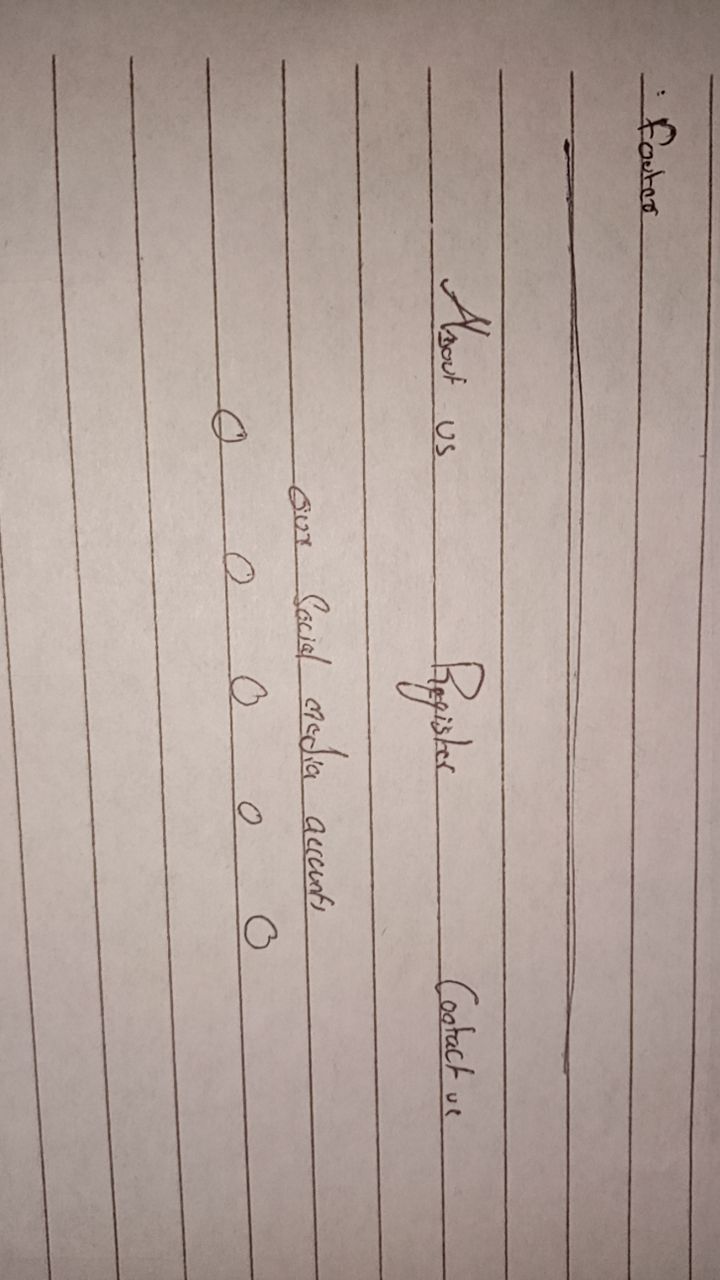 : Footer
About us Register Contact us
Our Social media accounts